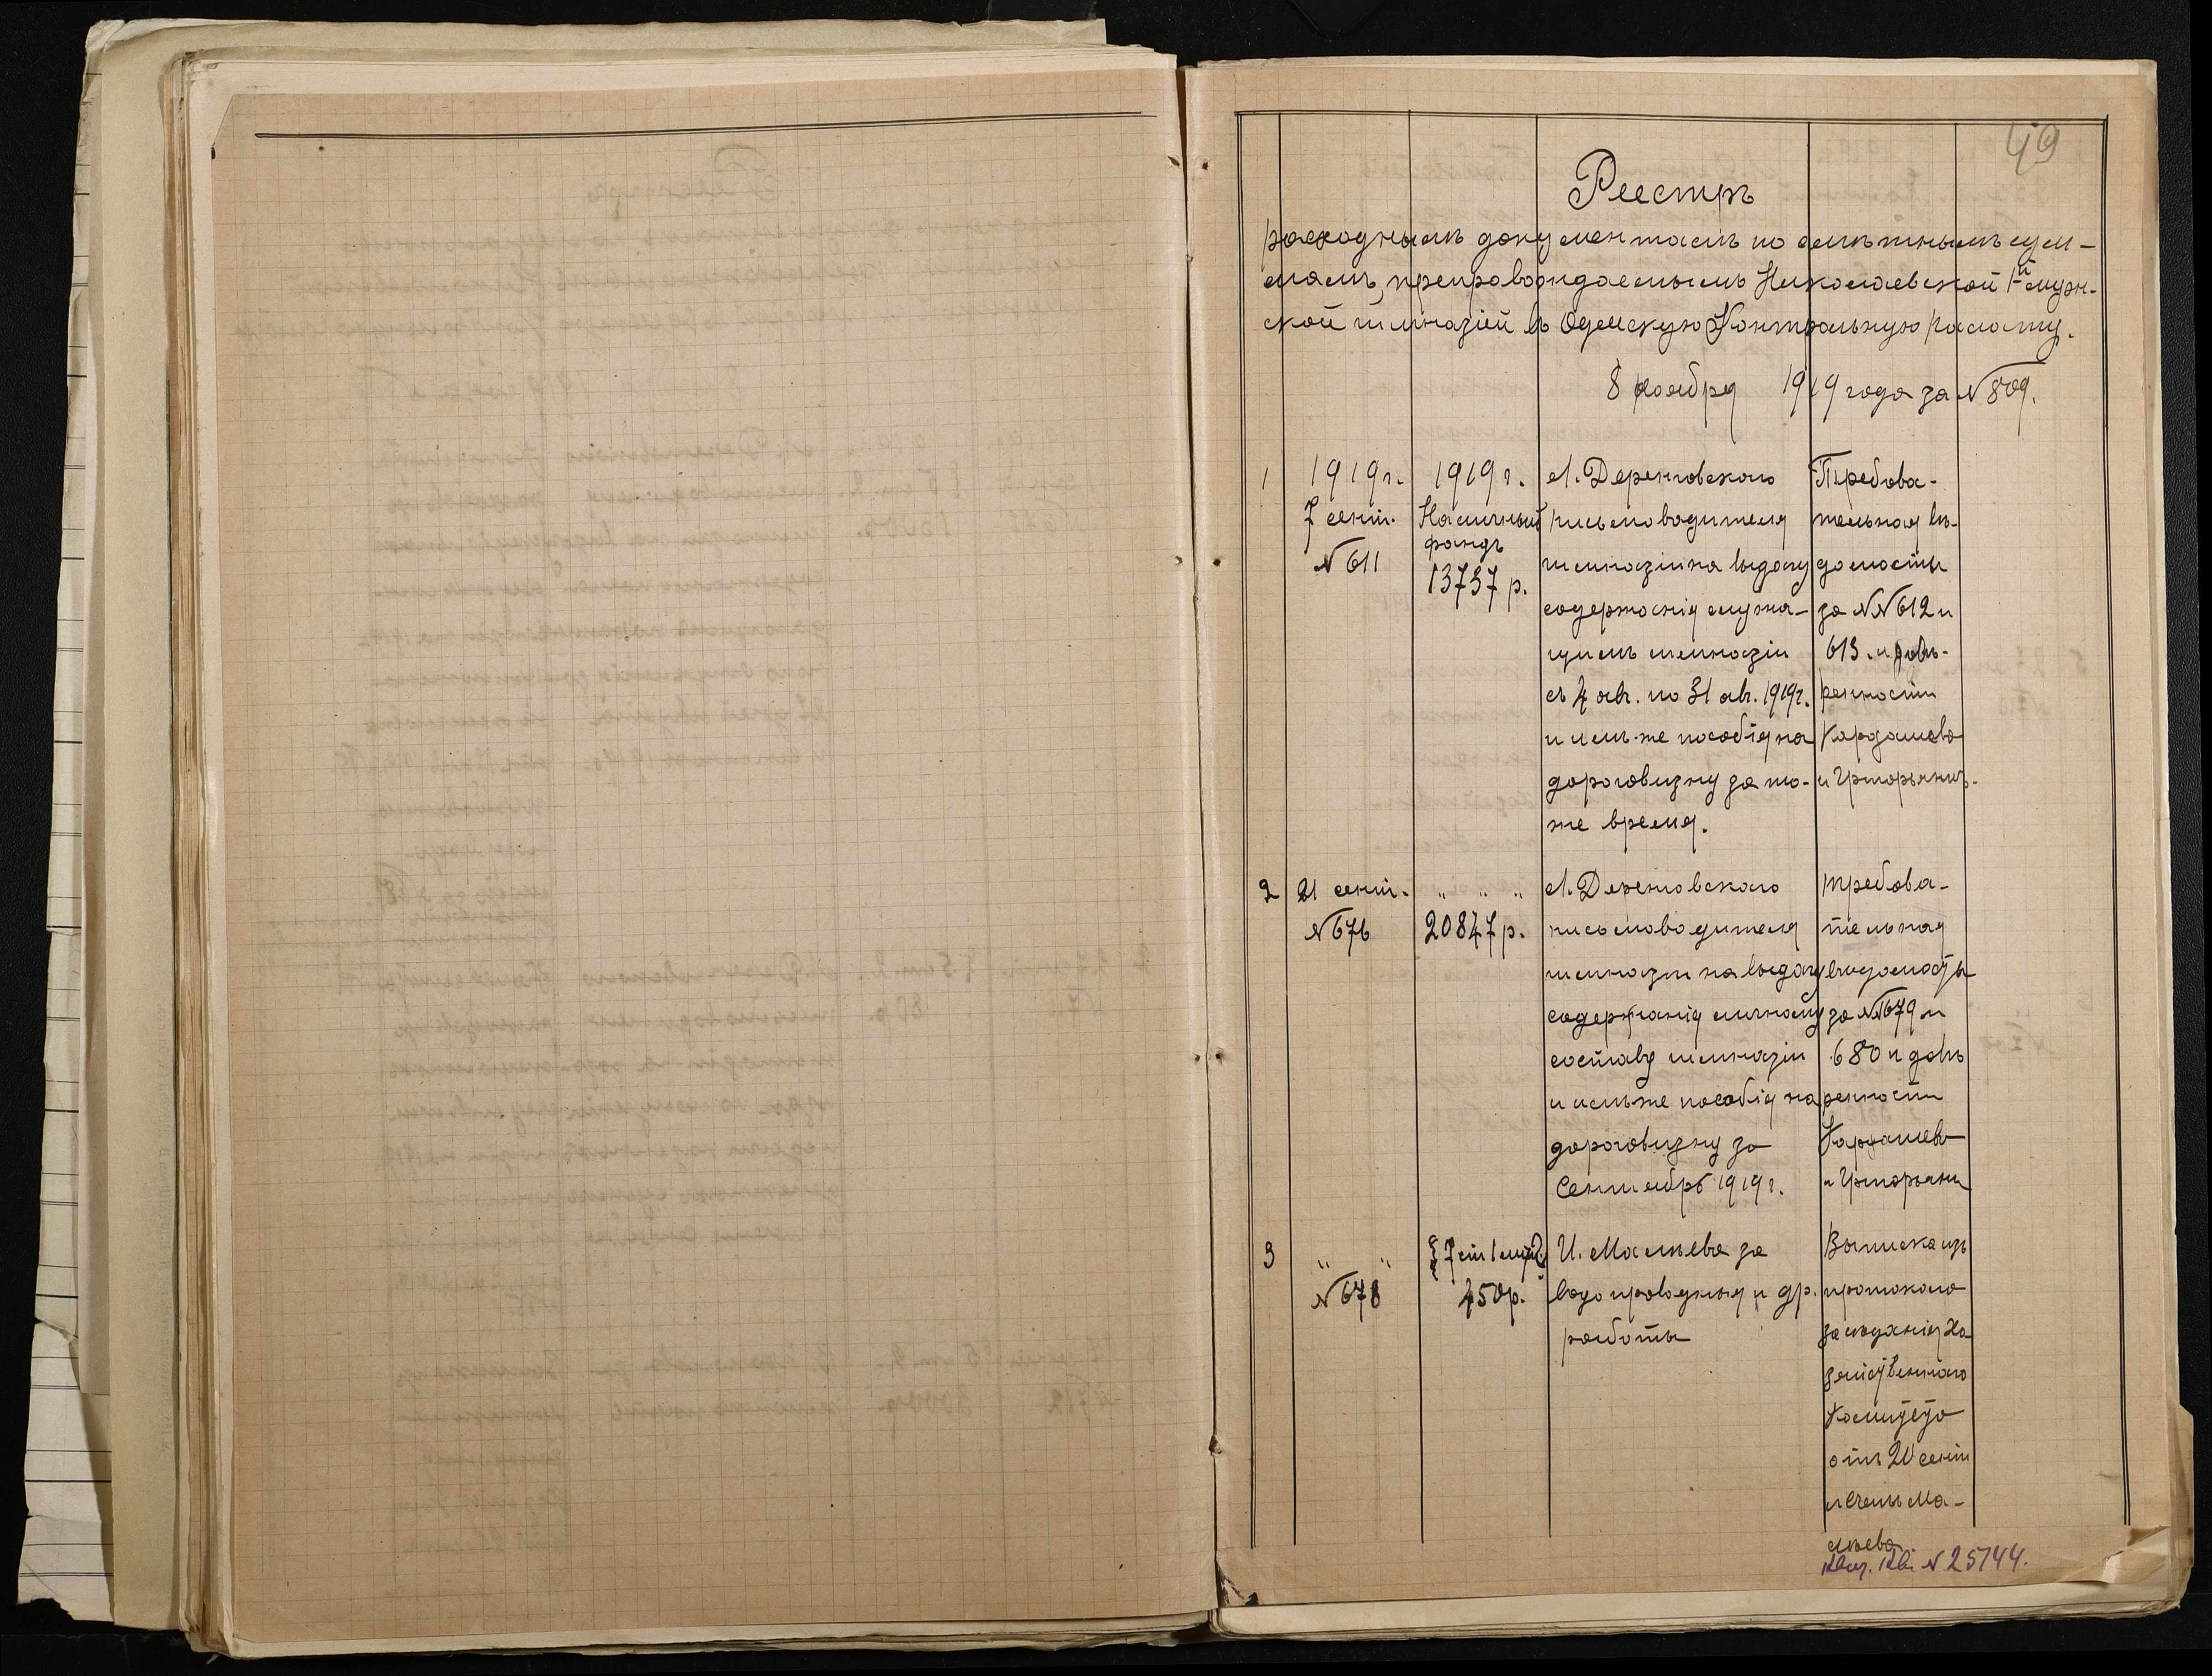 49
Реестръ
расходнымъ документамъ по смѣтнымъ сум-
мамъ, препровождаемымъ Николаевской 1й муж-
ской гимназіей въ Одесскую Контрольную палату.
8 ноября 1919 года за № 809.
1
1919 г.
7 сент.
№ 611
1919 г.
Наличный
фондъ
13737 р.
А. Дерновскаго
письмоводителя
гимназіи на выдачу
содержанія служа-
щимъ гимназіи
съ 4 авг. по 31 авг. 1919 г.
и имъ-же пособія на
дороговизну за то-
же время.
Требова-
тельная вѣ-
домость
за №№ 612 и
613. и довѣ-
ренности
Кардашева
2
21 сент.
№ 676
" " "
20847 р.
А. Дерновскаго
письмоводителя
гимназіи на выдачу
содержанія личному
составу гимназіи
и имъ-же пособія на
дороговизну за
Сентябрь 1919 г.
требова-
тельная
вѣдомость
за №№ 679 и
680 и довѣ
ренности
Кардашева
3
" "
№ 678
§ 7 ст 1
450 р.
И. Малѣева за
водопроводныя и др.
работы
Выписка изъ
протокола
засѣданія Хо
зяйственнаго
Комитета
отъ 20 сент
и счетъ Ма-
лѣева
№ 25744.